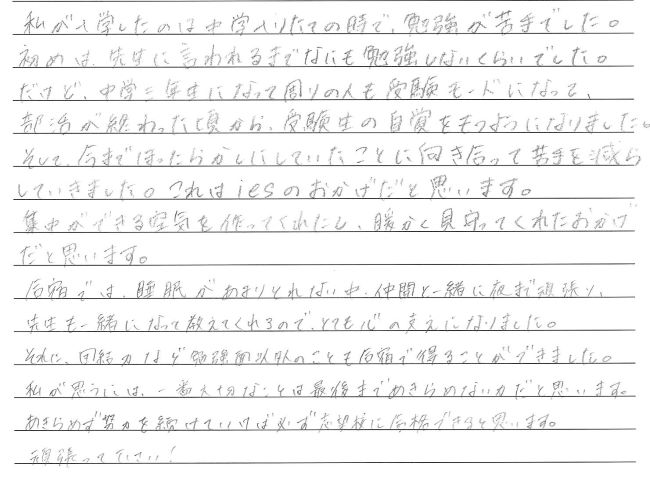 私が入学したのは中学入りたての時で、勉強が苦手でした。
初めは、先生に言われるまでなにも勉強しないくらいでした。
だけど、中学三年生になって周りの人も受験モードになって、
部活が終わった頃から、受験生の自覚をもつようになりました。
そして、今までほったらかしにしていたことに向き合って苦手を減ら
していきました。これはiesのおかげだと思います。
集中ができる空気を作ってくれたし、暖かく見守ってくれたおかげ
だと思います。
合宿では、睡眠があまりとれない中、仲間と一緒に夜まで頑張り、
先生も一緒になって教えてくれるので、とても心の支えになりました。
それに、団結力など勉強面以外のことも合宿で得ることができました。
私が思うには、一番大切なことは最後まであきらめない力だと思います。
あきらめず努力を続けていけば必ず志望校に合格できると思います。
頑張って下さい！